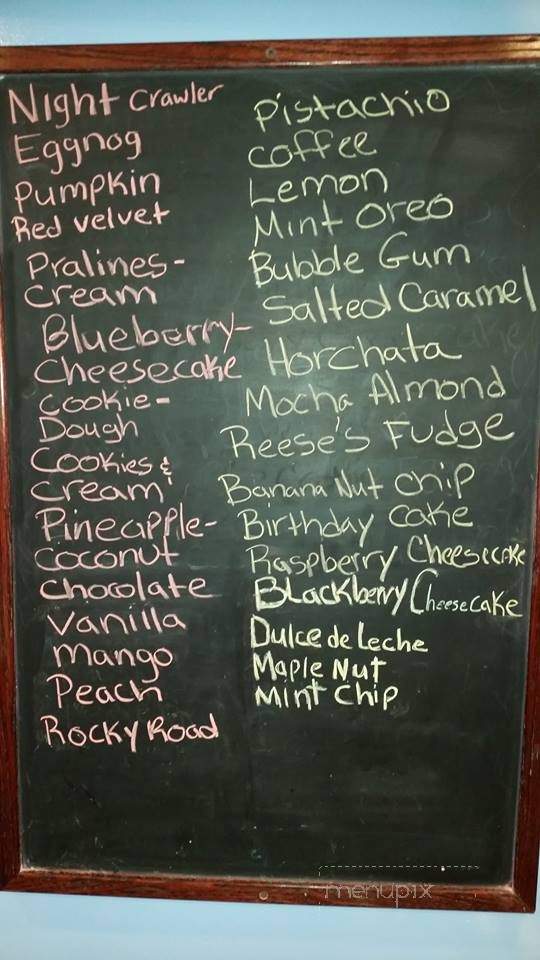 Night Crawler
Eggnog
Pumpkin
Red velvet
Pralines-
Cream
Blueberry-
Cheesecake
Cookie-
Dough
Cookies &
Cream
Pineapple-
Coconut
Chocolate
Vanilla
Mango
Peach
Rocky Road
Pistachio
Coffee
Lemon
Mint Oreo
Bubble Gum
Salted Caramel
Horchata
Mocha Almond
Reese's Fudge
Banana Nut Chip
Birthday Cake
Raspberry Cheesecake
Blackberry Cheesecake
Dulce de Leche
Maple Nut
Mint Chip
menupix